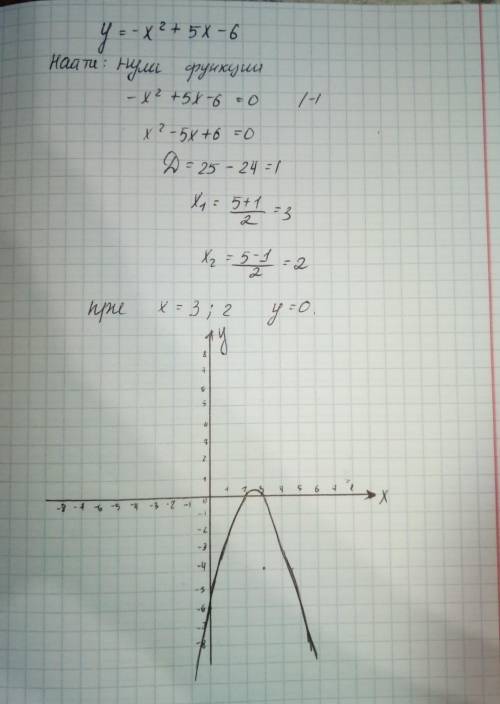 y = -x² + 5x - 6
Найти: нули функции
-x² + 5x - 6 = 0 /-1
x² - 5x + 6 = 0
D = 25 - 24 = 1
x₁ = (5+1)/2 = 3
x₂ = (5-1)/2 = 2
при x = 3 ; 2 y = 0.
y
8
7
6
5
4
3
2
1
-8 -7 -6 -5 -4 -3 -2 -1 0 1 2 3 4 5 6 7 8 x
-1
-2
-3
-4
-5
-6
-7
-8